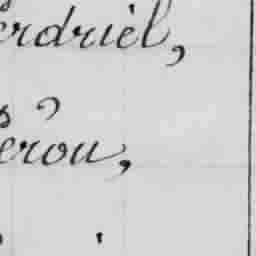 erdriel,
erou,